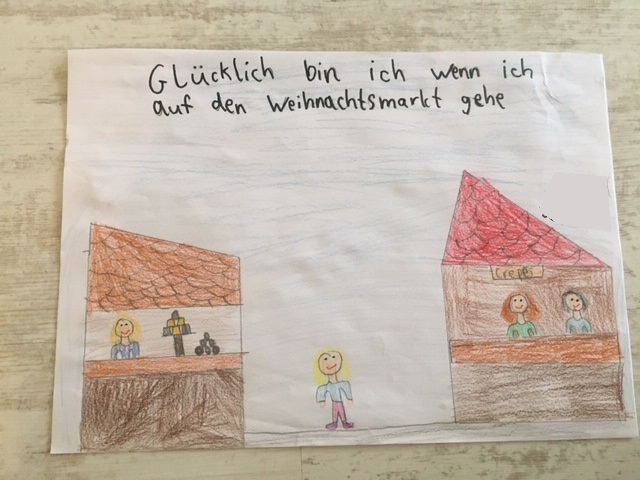 Glücklich bin ich wenn ich
auf den Weihnachtsmarkt gehe
Crepes